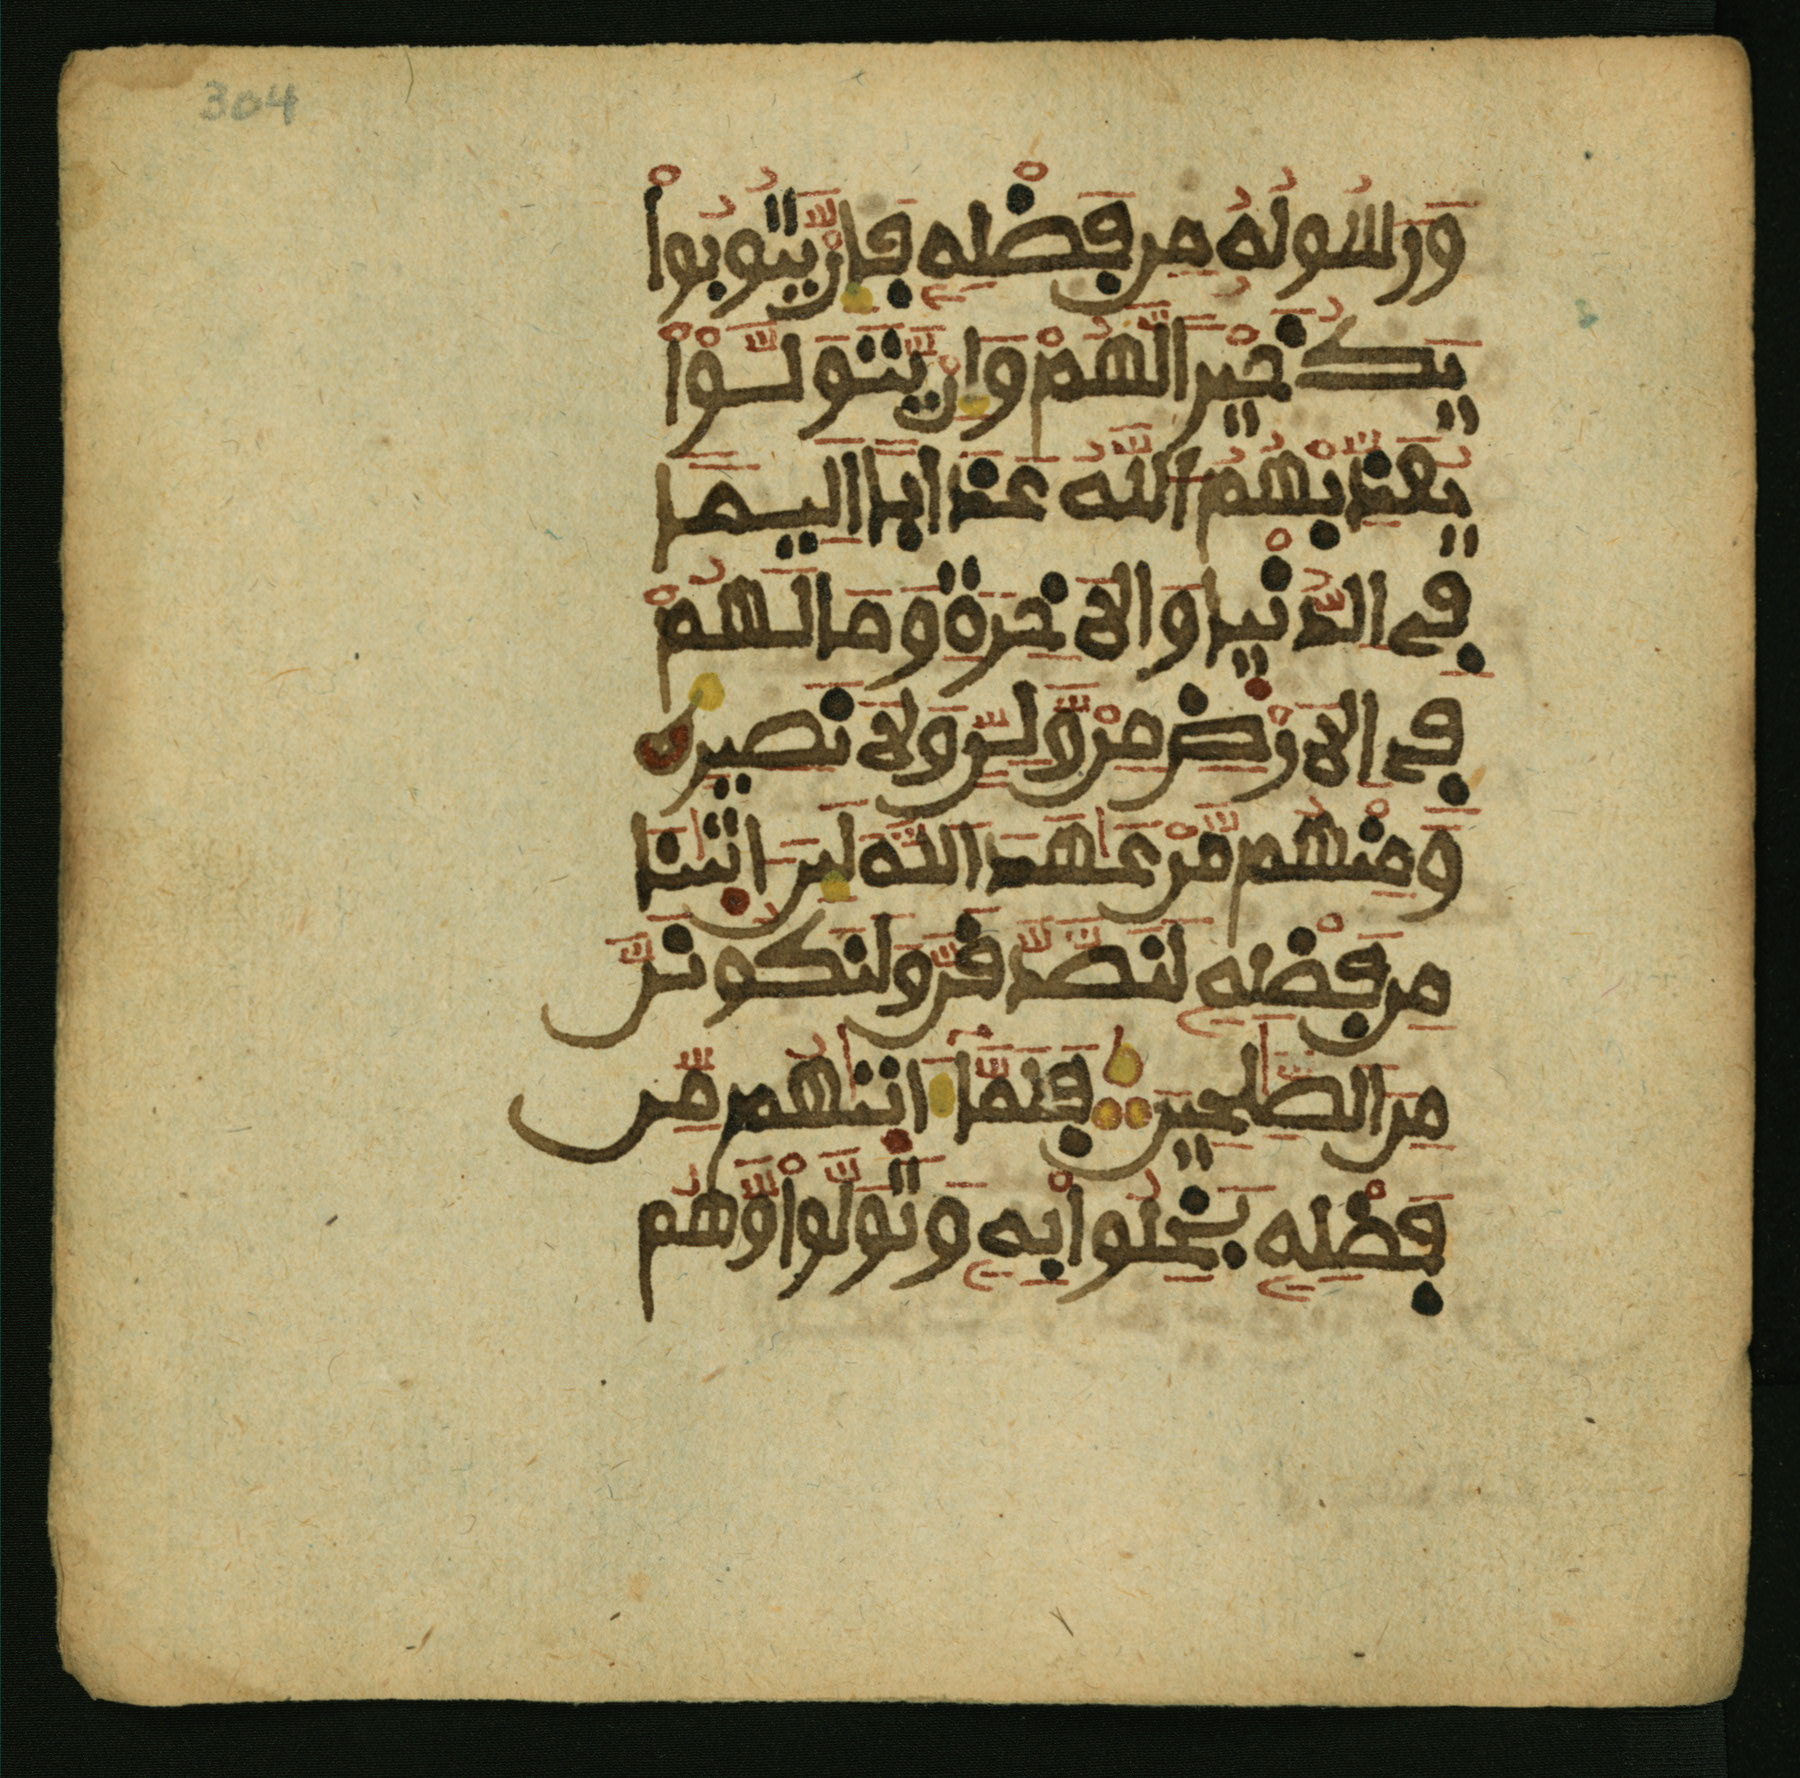 304
وَرَسُولُهُ مِن فَضْلِهِ فَإِنْ يَّتُوبُوا
يَكُ خَيْرًا لَّهُمْ وَإِنْ يَّتَوَلَّوْا
يُعَذِّبْهُمُ اللَّهُ عَذَابًا اَلِيمًا
فِي الدُّنْيَا وَالَاخِرَةِ وَمَا لَهُمْ
فِي الَارْضِ مِنْ وَّلِيٍّ وَلَا نَصِيرٍ
وَمِنْهُم مَّنْ عَٰهَدَ اللَّهَ لَئِنَ اٰتَىٰنَا
مِن فَضْلِهِ لَنَصَّدَّقَنَّ وَلَنَكُونَنَّ
مِنَ الصَّٰلِحِينَ فَلَمَّا ءَاتَىٰهُم مِّن
فَضْلِهِ بَخِلُوا بِهِ وَتَوَلَّوْا وَّهُم